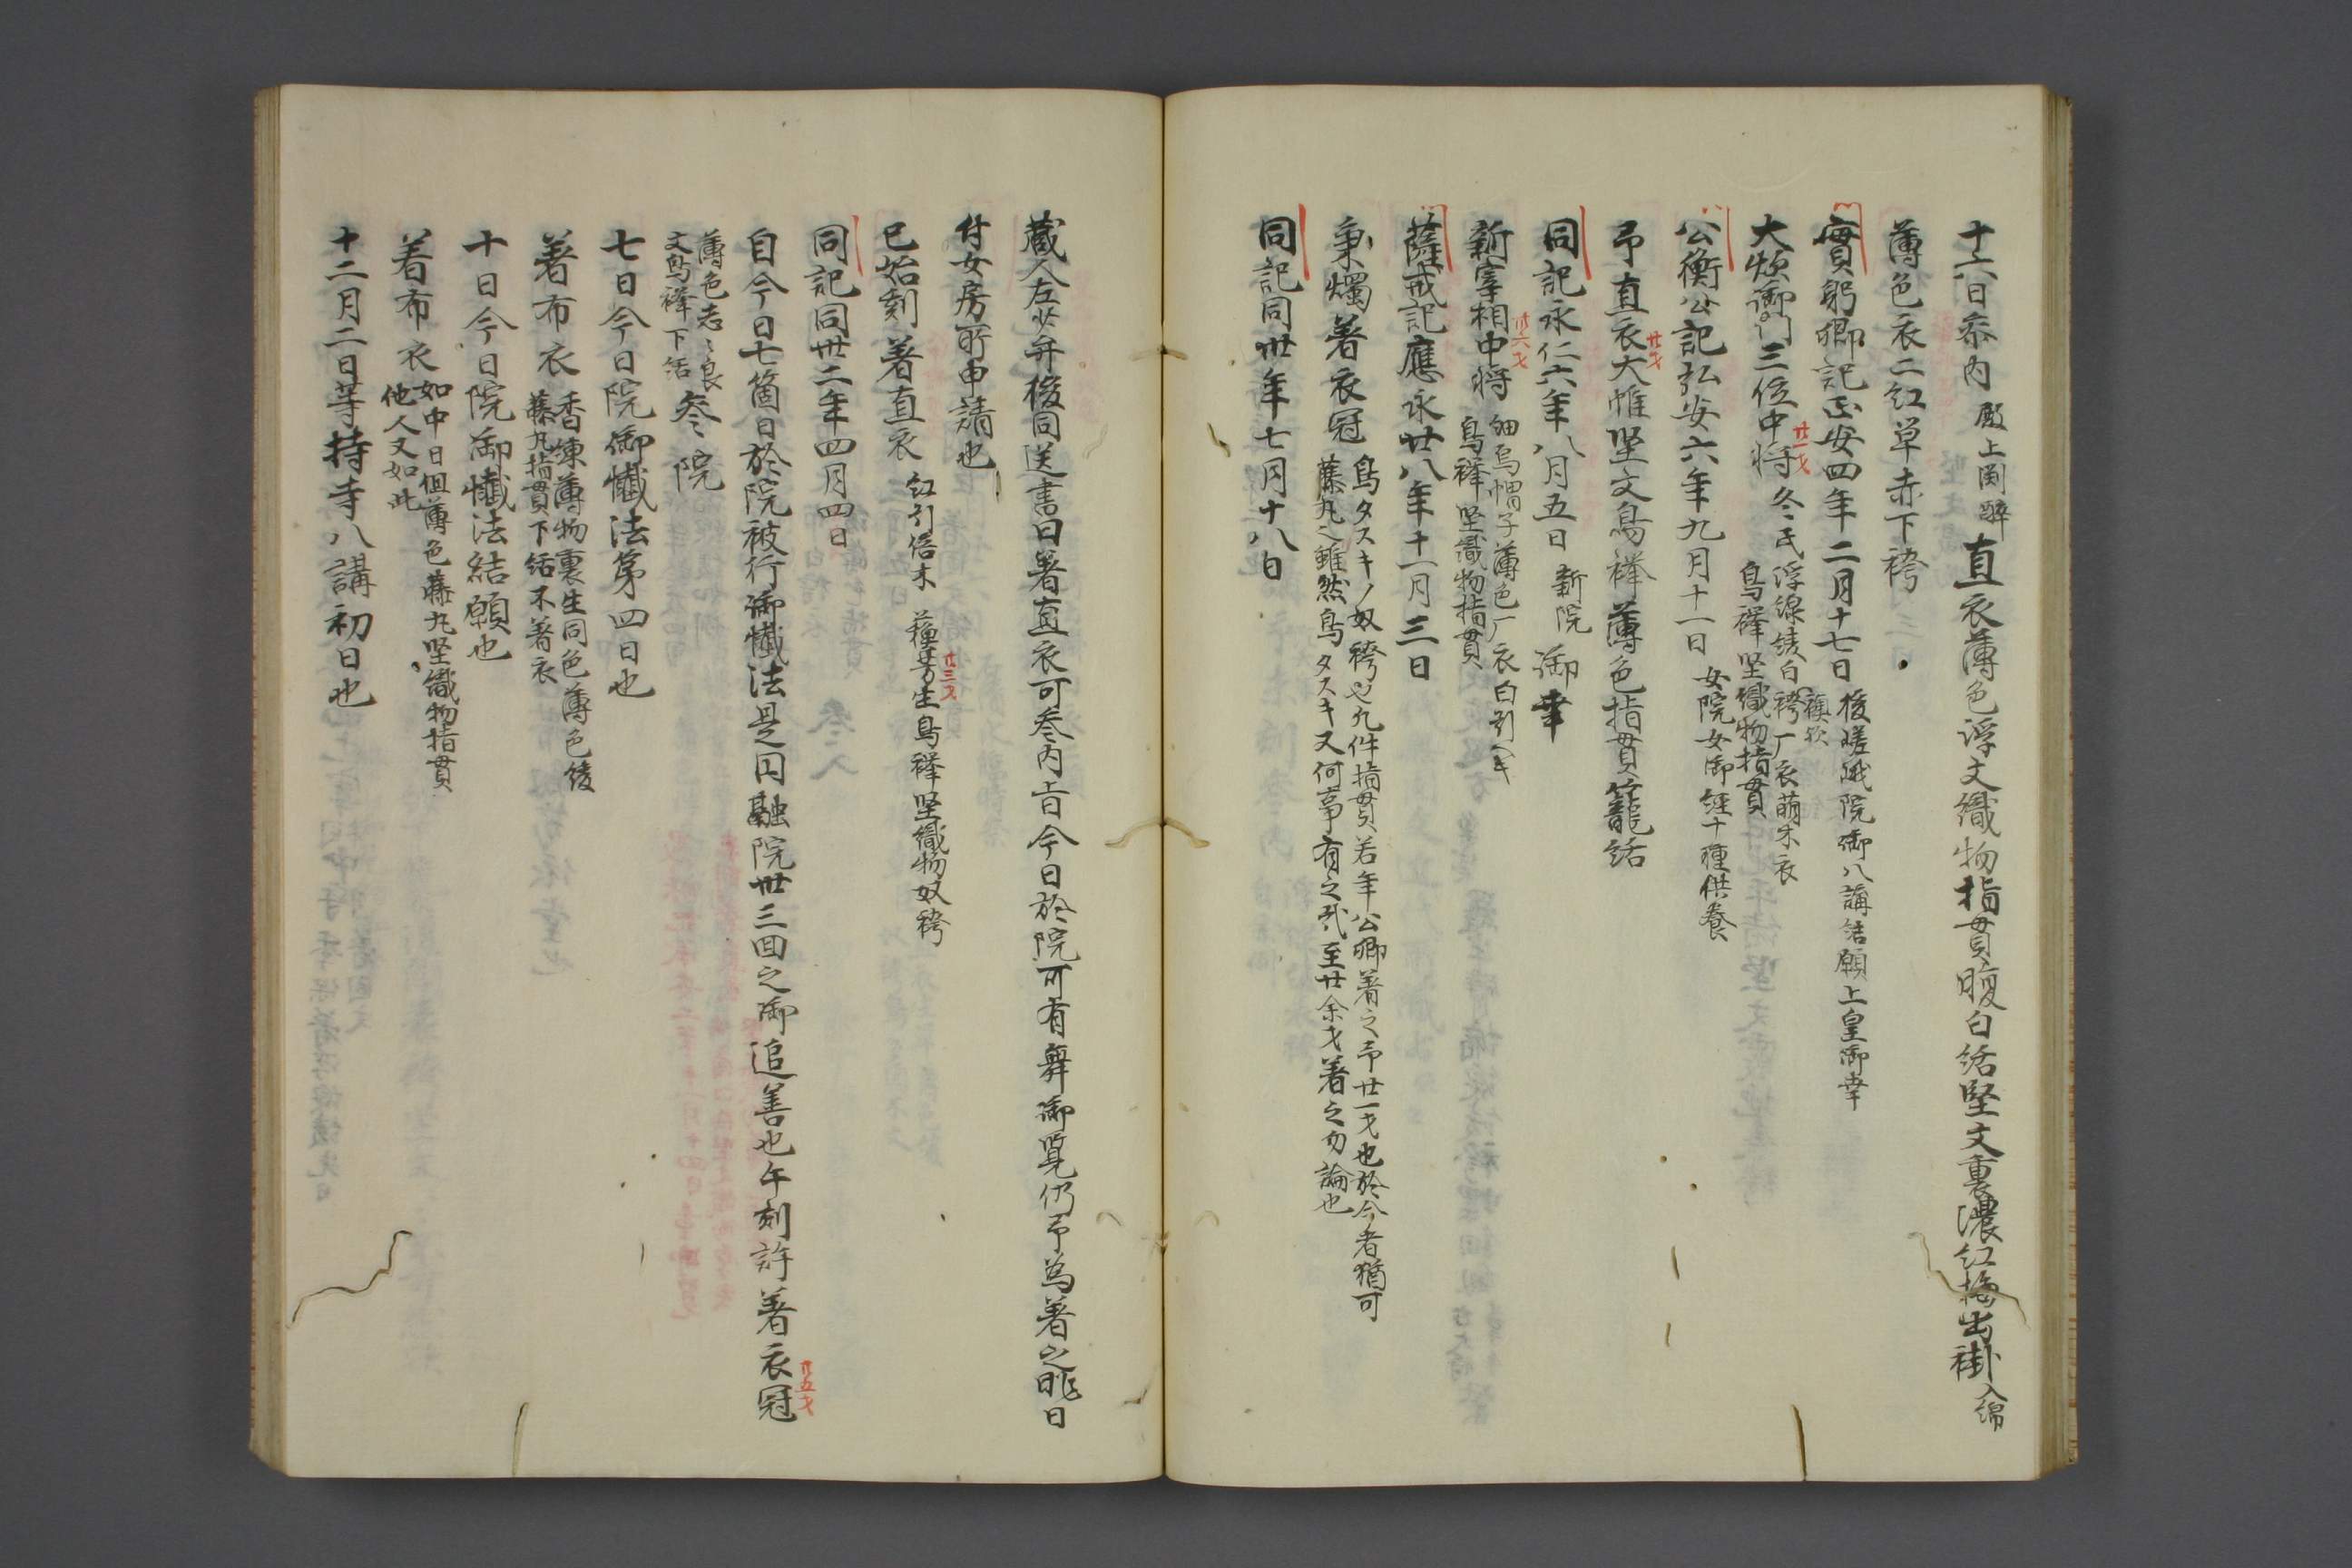 十六日参内殿上淵酔直衣薄色浮文織物指貫腹白括堅文裏濃紅梅出褂入綿
薄色衣二紅単赤下袴
実躬卿記正安四年二月十七日後嵯峨院御八講結願上皇御幸
大炊御門三位中将廿一才冬氏浮線綾白襖欤袴厂衣萌木衣
鳥襷堅織物指貫
公衡公記弘安六年九月十一日女院女御経十種供養
予直衣廿才大帷堅文鳥襷薄色指貫籠括
同記永仁六年八月五日新院御幸
新宰相中将廿六才細烏帽子薄色厂衣白引ヘキ
鳥襷堅織物指貫
薩戒記應永廿八年十一月三日
秉燭著衣冠鳥タスキノ奴袴也凡件指貫若年公卿著之予廿一才也於今者猶可
藤丸也雖然鳥タスキ又何事有之哉至廿余才著之勿論也
同記同卅年七月十八日
蔵人左少弁俊同送書曰著直衣可参内旨今日於院可有舞御覧仍予為著之昨日
付女房所申請也
巳始刻著直衣紅引倍木蘇芳生廿三才鳥襷堅織物奴袴
同記同卅二年四月四日
自今日七箇日於院被行御懺法是円融院卅三回之御追善也午刻許著衣冠廿五才
薄色志ヽ良
文鳥襷下括参院
七日今日院御懺法第四日也
著布衣香練薄物裏生同色薄色綾
藤丸指貫下括不著衣
十日今日院御懺法結願也
着布衣如中日但薄色藤丸堅織物指貫
他人又如此
十二月二日等持寺八講初日也